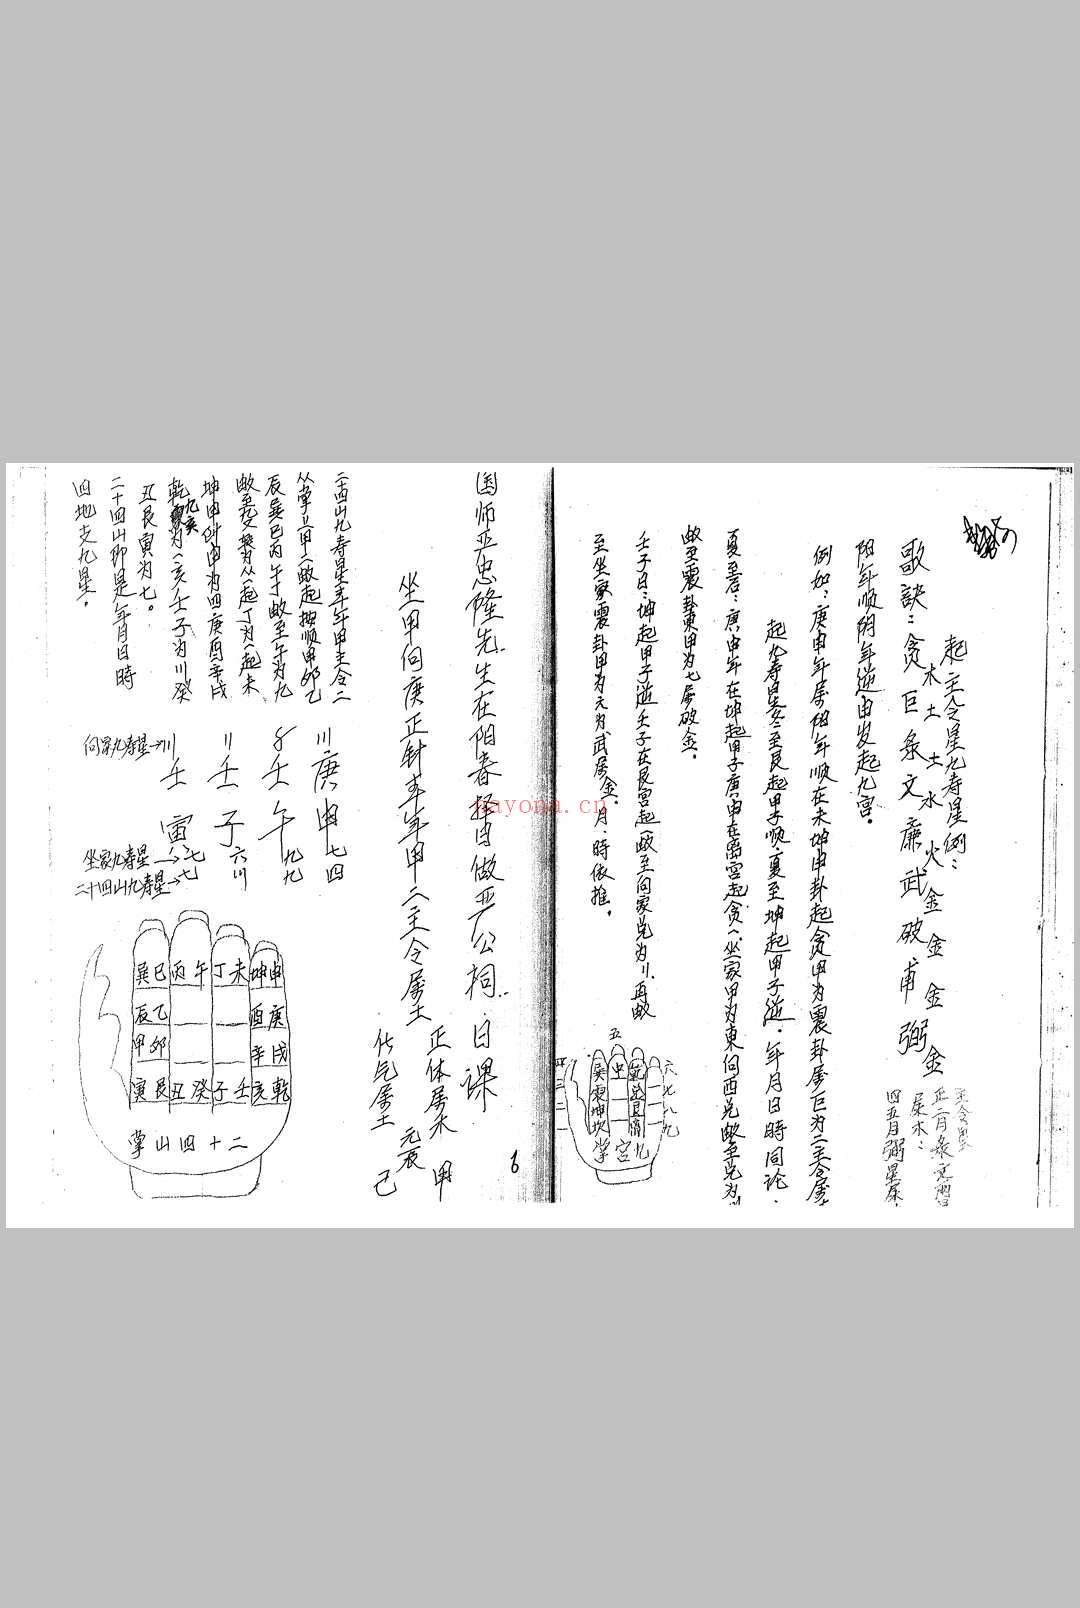 起主令星九寿星例：
歌訣：贪巨条文廉武破甫弼
木土土水火金金金金
主令星
正二月条文
属木：
四五月弼星属
阳年顺阴年逆由岁起九宫。
例如：庚申年属阳年顺在未坤申卦起贪甲为震卦属巨为二主令属土
起九寿星冬至艮起甲子顺．夏至坤起甲子逆．年月日時同论．
夏至若：庚申年在坤起甲子庚申在离宫起贪八坐家甲为東向西兑
至震卦東甲为七属破金．
壬子日：坤起甲子逆壬子在艮宫起至向家兑为〣再
至坐家震卦甲为六为武属金．月．時依推．
五
四 三 二 一
六 七 八 九
巽震坤坎
中
乾兑艮離
九宫掌
国师严忠隆先生在阳春择日做严公祠．日课
坐甲向庚正针年甲二主令属土
正体属木 甲
化气属土 元辰 己
二十四山九寿星年甲主令二
从掌上甲起按顺甲卯乙
辰巽巳丙午丁至午为九
起丁为起未
坤申为四庚酉辛戌
乾亥为壬子为〣癸
丑艮寅为七。
二十四山即是年月日時
四地支九星。
〣庚申七四
壬午九九
〢壬子六〣
向家九寿星→〣壬寅七七
坐家九寿星→
二十四山九寿星→
巽巳丙午丁未坤申
辰乙酉庚
甲卯辛戌
寅艮丑癸子壬亥乾
掌山四十二
6
nayona.cn